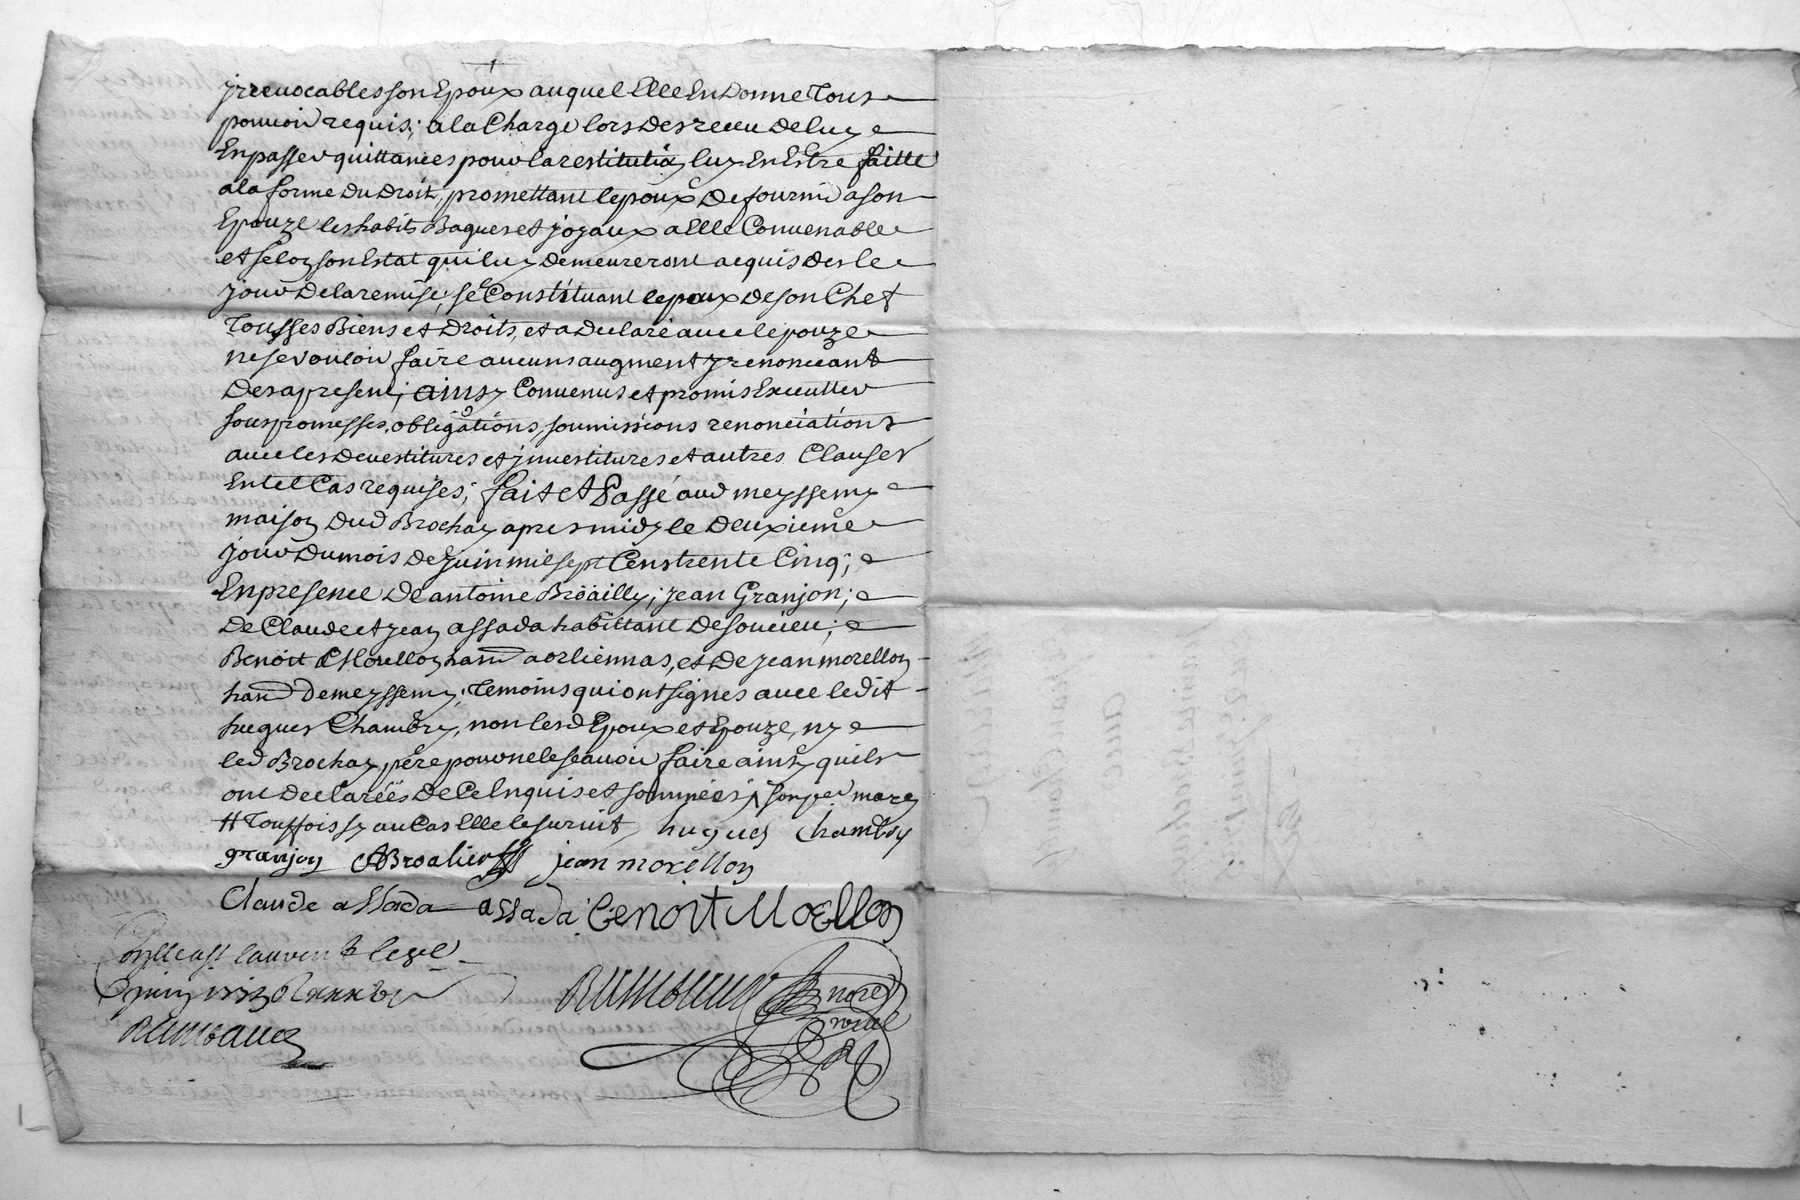 jrreuocables son Epoux auquel Elle En Donne Tous
pouuoir requis; a la Charge lors des receu de luy
En passer quittances pour la restitution luy En Estre faitte
a la forme Du Droit, promettant lepoux De fournir a son
Epouze les habits Bagues et joyaux a Elle Conuenable
et selon son Estat qui luy Demeureront acquis Des le
jour De la remise, se Constituant lepoux De son Chef
Tous ses Biens et Droits, et a Declaré auec lepouze
ne se vouloir faire aucuns augment y renonceant
Des a present; ainsy Conuenus et promis Executter
sous promesses, obligations, soumissions renonciations
auec les Deuestitures et jnuestitures et autres Clauses
En tel Cas requises; fait et Passé aud meyssemy
maison Dud Brochay apres midy le Deuxieme
jour Du mois De Juin mil sept Cens trente Cinq;
En presence De antoine Broailly; jean Granjon;
De Claude et jean assada habittant De soucieu;
Benoit Morellon hant a orliennas, et De jean morellon
hant De meyssemy, Temoins qui ont signes auec ledit
hugues Chambry, non lesd Epoux et Epouze, ny
led Brochay pere pour ne le scauoir faire ainsy quils
ont Declarées De Ce Enquis et sommées
# Touffois sy au Cas Elle le suruit hugues Chambry
granjon ABroalier jean morellon
Claude assada assada benoit Moellon
le
Juin 1735
Rimbaud Rimbaud nore
royal